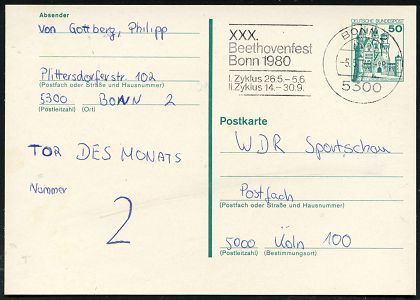 Absender
Von Gottberg, Philipp
Plittersdorferstr. 102
(Postfach oder Straße und Hausnummer)
5300 BONN 2
(Postleitzahl) (Ort)
TOR DES MONATS
Nummer
2
XXX.
Beethovenfest
Bonn 1980
I. Zyklus 26.5.– 5.6.
II. Zyklus 14.– 30.9.
BONN
-5.
5300
DEUTSCHE BUNDESPOST
50
Postkarte
WDR Sportschau
Postfach
(Postfach oder Straße und Hausnummer)
5000 Köln 100
(Postleitzahl) (Bestimmungsort)